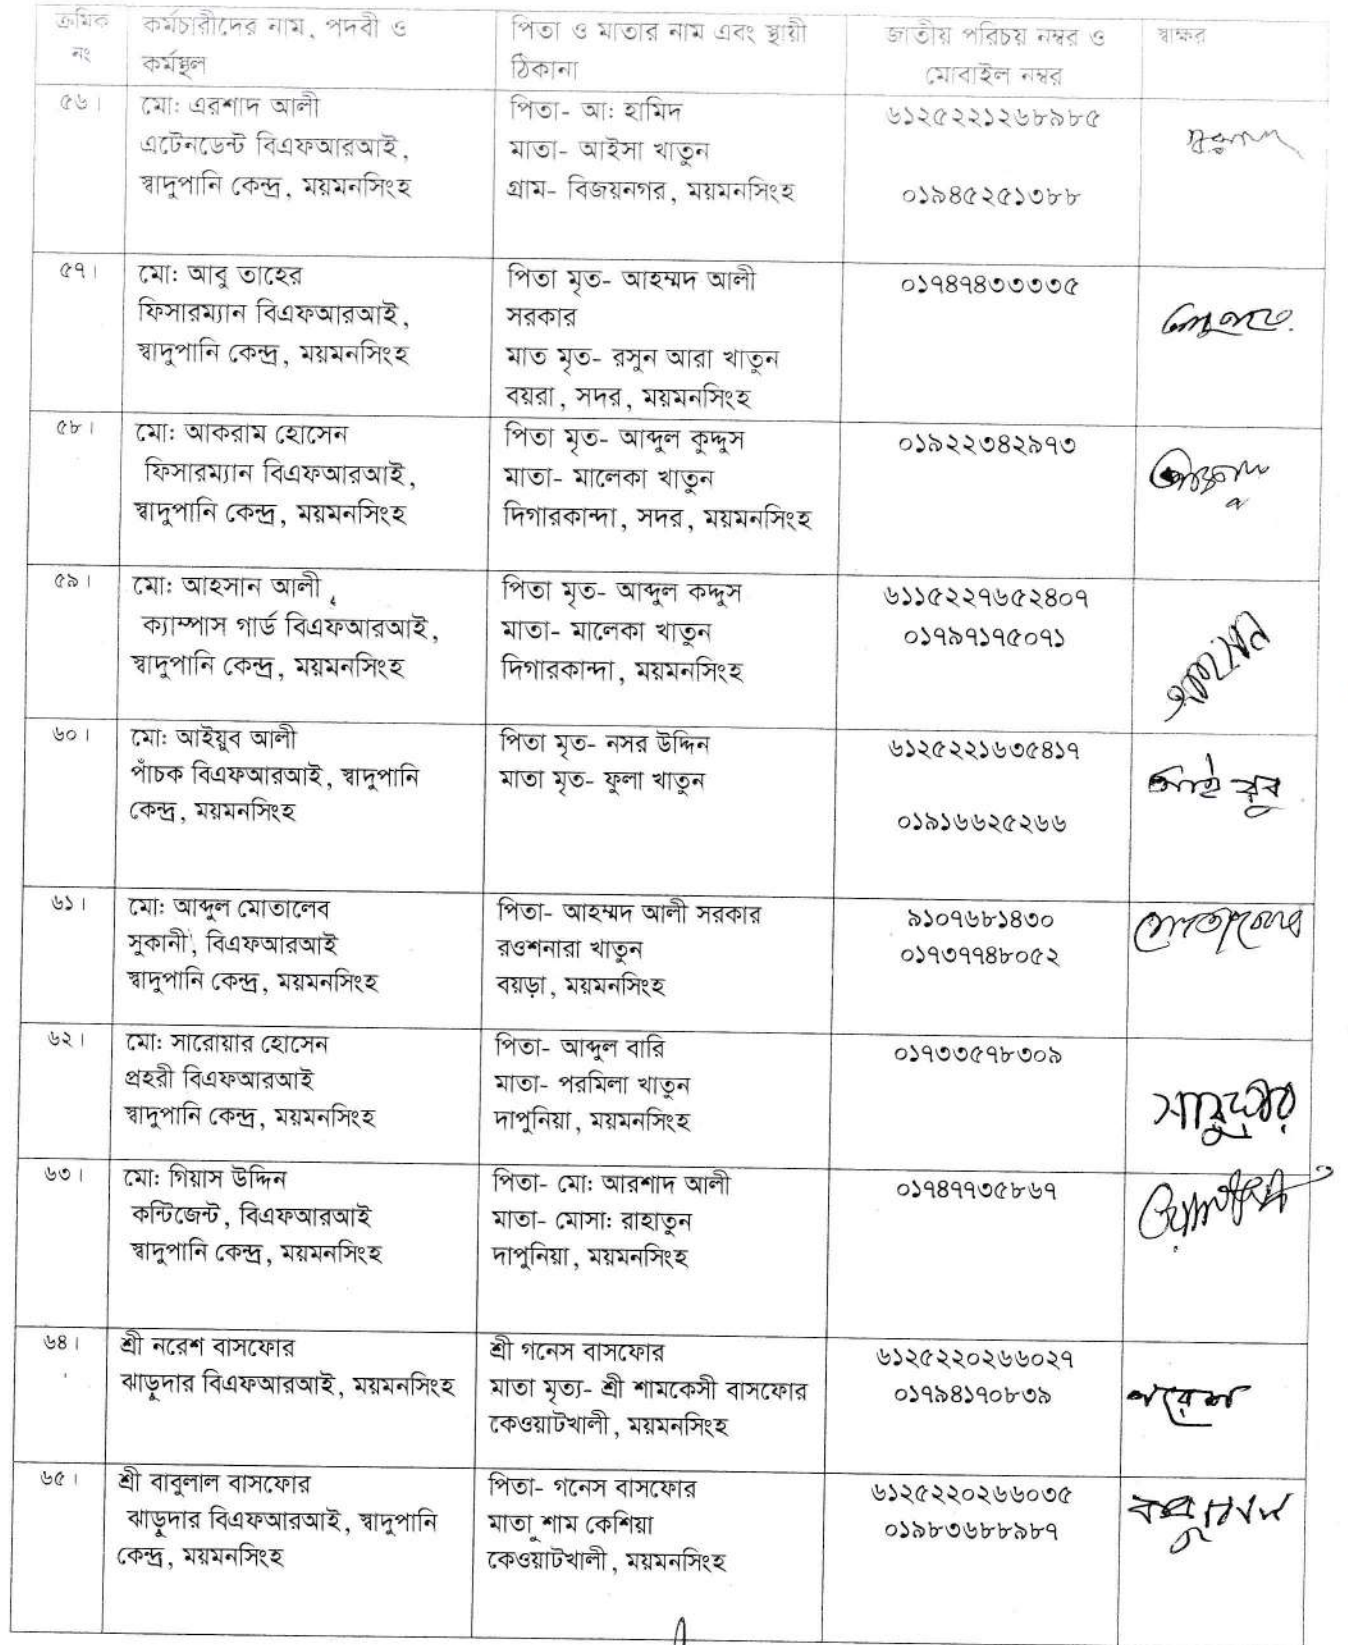 ক্রমিক নং
কর্মচারীদের নাম, পদবী ও
কর্মস্থল
পিতা ও মাতার নাম এবং স্থায়ী
ঠিকানা
জাতীয় পরিচয় নম্বর ও
মোবাইল নম্বর
স্বাক্ষর
৫৬।
মো: এরশাদ আলী
এটেনডেন্ট বিএফআরআই,
স্বাদুপানি কেন্দ্র, ময়মনসিংহ
পিতা- আ: হামিদ
মাতা- আইসা খাতুন
গ্রাম- বিজয়নগর, ময়মনসিংহ
৬১২৫২২১২৬৮৯৮৫
০১৯৪৫২৫১৩৮৮
৫৭।
মো: আবু তাহের
ফিসারম্যান বিএফআরআই,
স্বাদুপানি কেন্দ্র, ময়মনসিংহ
পিতা মৃত- আহম্মদ আলী
সরকার
মাত মৃত- রসুন আরা খাতুন
বয়রা, সদর, ময়মনসিংহ
০১৭৪৭৪৩৩৩৩৫
৫৮।
মো: আকরাম হোসেন
ফিসারম্যান বিএফআরআই,
স্বাদুপানি কেন্দ্র, ময়মনসিংহ
পিতা মৃত- আব্দুল কুদ্দুস
মাতা- মালেকা খাতুন
দিগারকান্দা, সদর, ময়মনসিংহ
০১৯২২৩৪২৯৭৩
৫৯।
মো: আহসান আলী
ক্যাম্পাস গার্ড বিএফআরআই,
স্বাদুপানি কেন্দ্র, ময়মনসিংহ
পিতা মৃত- আব্দুল কদ্দুস
মাতা- মালেকা খাতুন
দিগারকান্দা, ময়মনসিংহ
৬১১৫২২৭৬৫২৪০৭
০১৭৯৭১৭৫০৭১
আহসান
৬০।
মো: আইয়ুব আলী
পাঁচক বিএফআরআই, স্বাদুপানি
কেন্দ্র, ময়মনসিংহ
পিতা মৃত- নসর উদ্দিন
মাতা মৃত- ফুলা খাতুন
৬১২৫২২১৬৩৫৪১৭
০১৯১৬৬২৫২৬৬
আইয়ুব
৬১।
মো: আব্দুল মোতালেব
সুকানী, বিএফআরআই
স্বাদুপানি কেন্দ্র, ময়মনসিংহ
পিতা- আহম্মদ আলী সরকার
রওশনারা খাতুন
বয়ড়া, ময়মনসিংহ
৯১০৭৬৮১৪৩০
০১৭৩৭৭৪৮০৫২
মোতালেব
৬২।
মো: সারোয়ার হোসেন
প্রহরী বিএফআরআই
স্বাদুপানি কেন্দ্র, ময়মনসিংহ
পিতা- আব্দুল বারি
মাতা- পরমিলা খাতুন
দাপুনিয়া, ময়মনসিংহ
০১৭৩৩৫৭৮৩০৯
৬৩।
মো: গিয়াস উদ্দিন
কন্টিজেন্ট, বিএফআরআই
স্বাদুপানি কেন্দ্র, ময়মনসিংহ
পিতা- মো: আরশাদ আলী
মাতা- মোসা: রাহাতুন
দাপুনিয়া, ময়মনসিংহ
০১৭৪৭৭৩৫৮৬৭
৬৪।
শ্রী নরেশ বাসফোর
ঝাড়ুদার বিএফআরআই, ময়মনসিংহ
শ্রী গনেস বাসফোর
মাতা মৃত্য- শ্রী শামকেসী বাসফোর
কেওয়াটখালী, ময়মনসিংহ
৬১২৫২২০২৬৬০২৭
০১৭৯৪১৭০৮৩৯
নরেশ
৬৫।
শ্রী বাবুলাল বাসফোর
ঝাড়ুদার বিএফআরআই, স্বাদুপানি
কেন্দ্র, ময়মনসিংহ
পিতা- গনেস বাসফোর
মাতা শাম কেশিয়া
কেওয়াটখালী, ময়মনসিংহ
৬১২৫২২০২৬৬০৩৫
০১৯৮৩৬৮৮৯৮৭